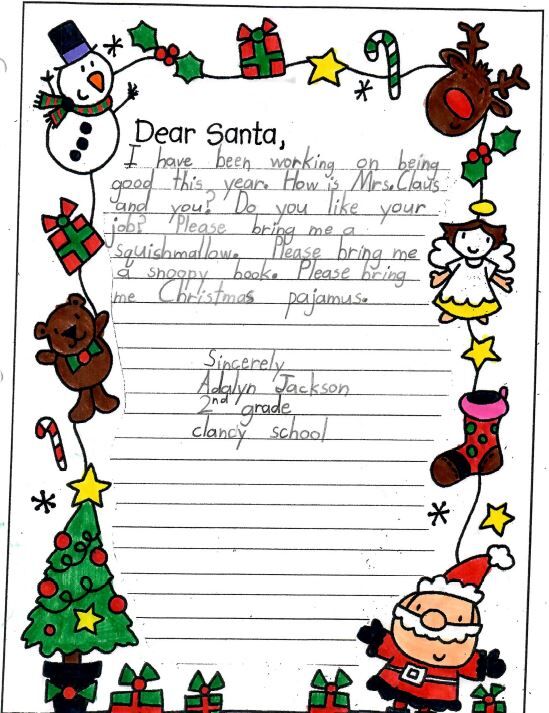 Dear Santa,
I have been working on being
good this year. How is Mrs. Claus
and you? Do you like your
job? Please bring me a
squishmallow. Please bring me
a snoopy book. Please bring
me Christmas pajamus.
Sincerely
Adalyn Jackson
2nd grade
clancy school